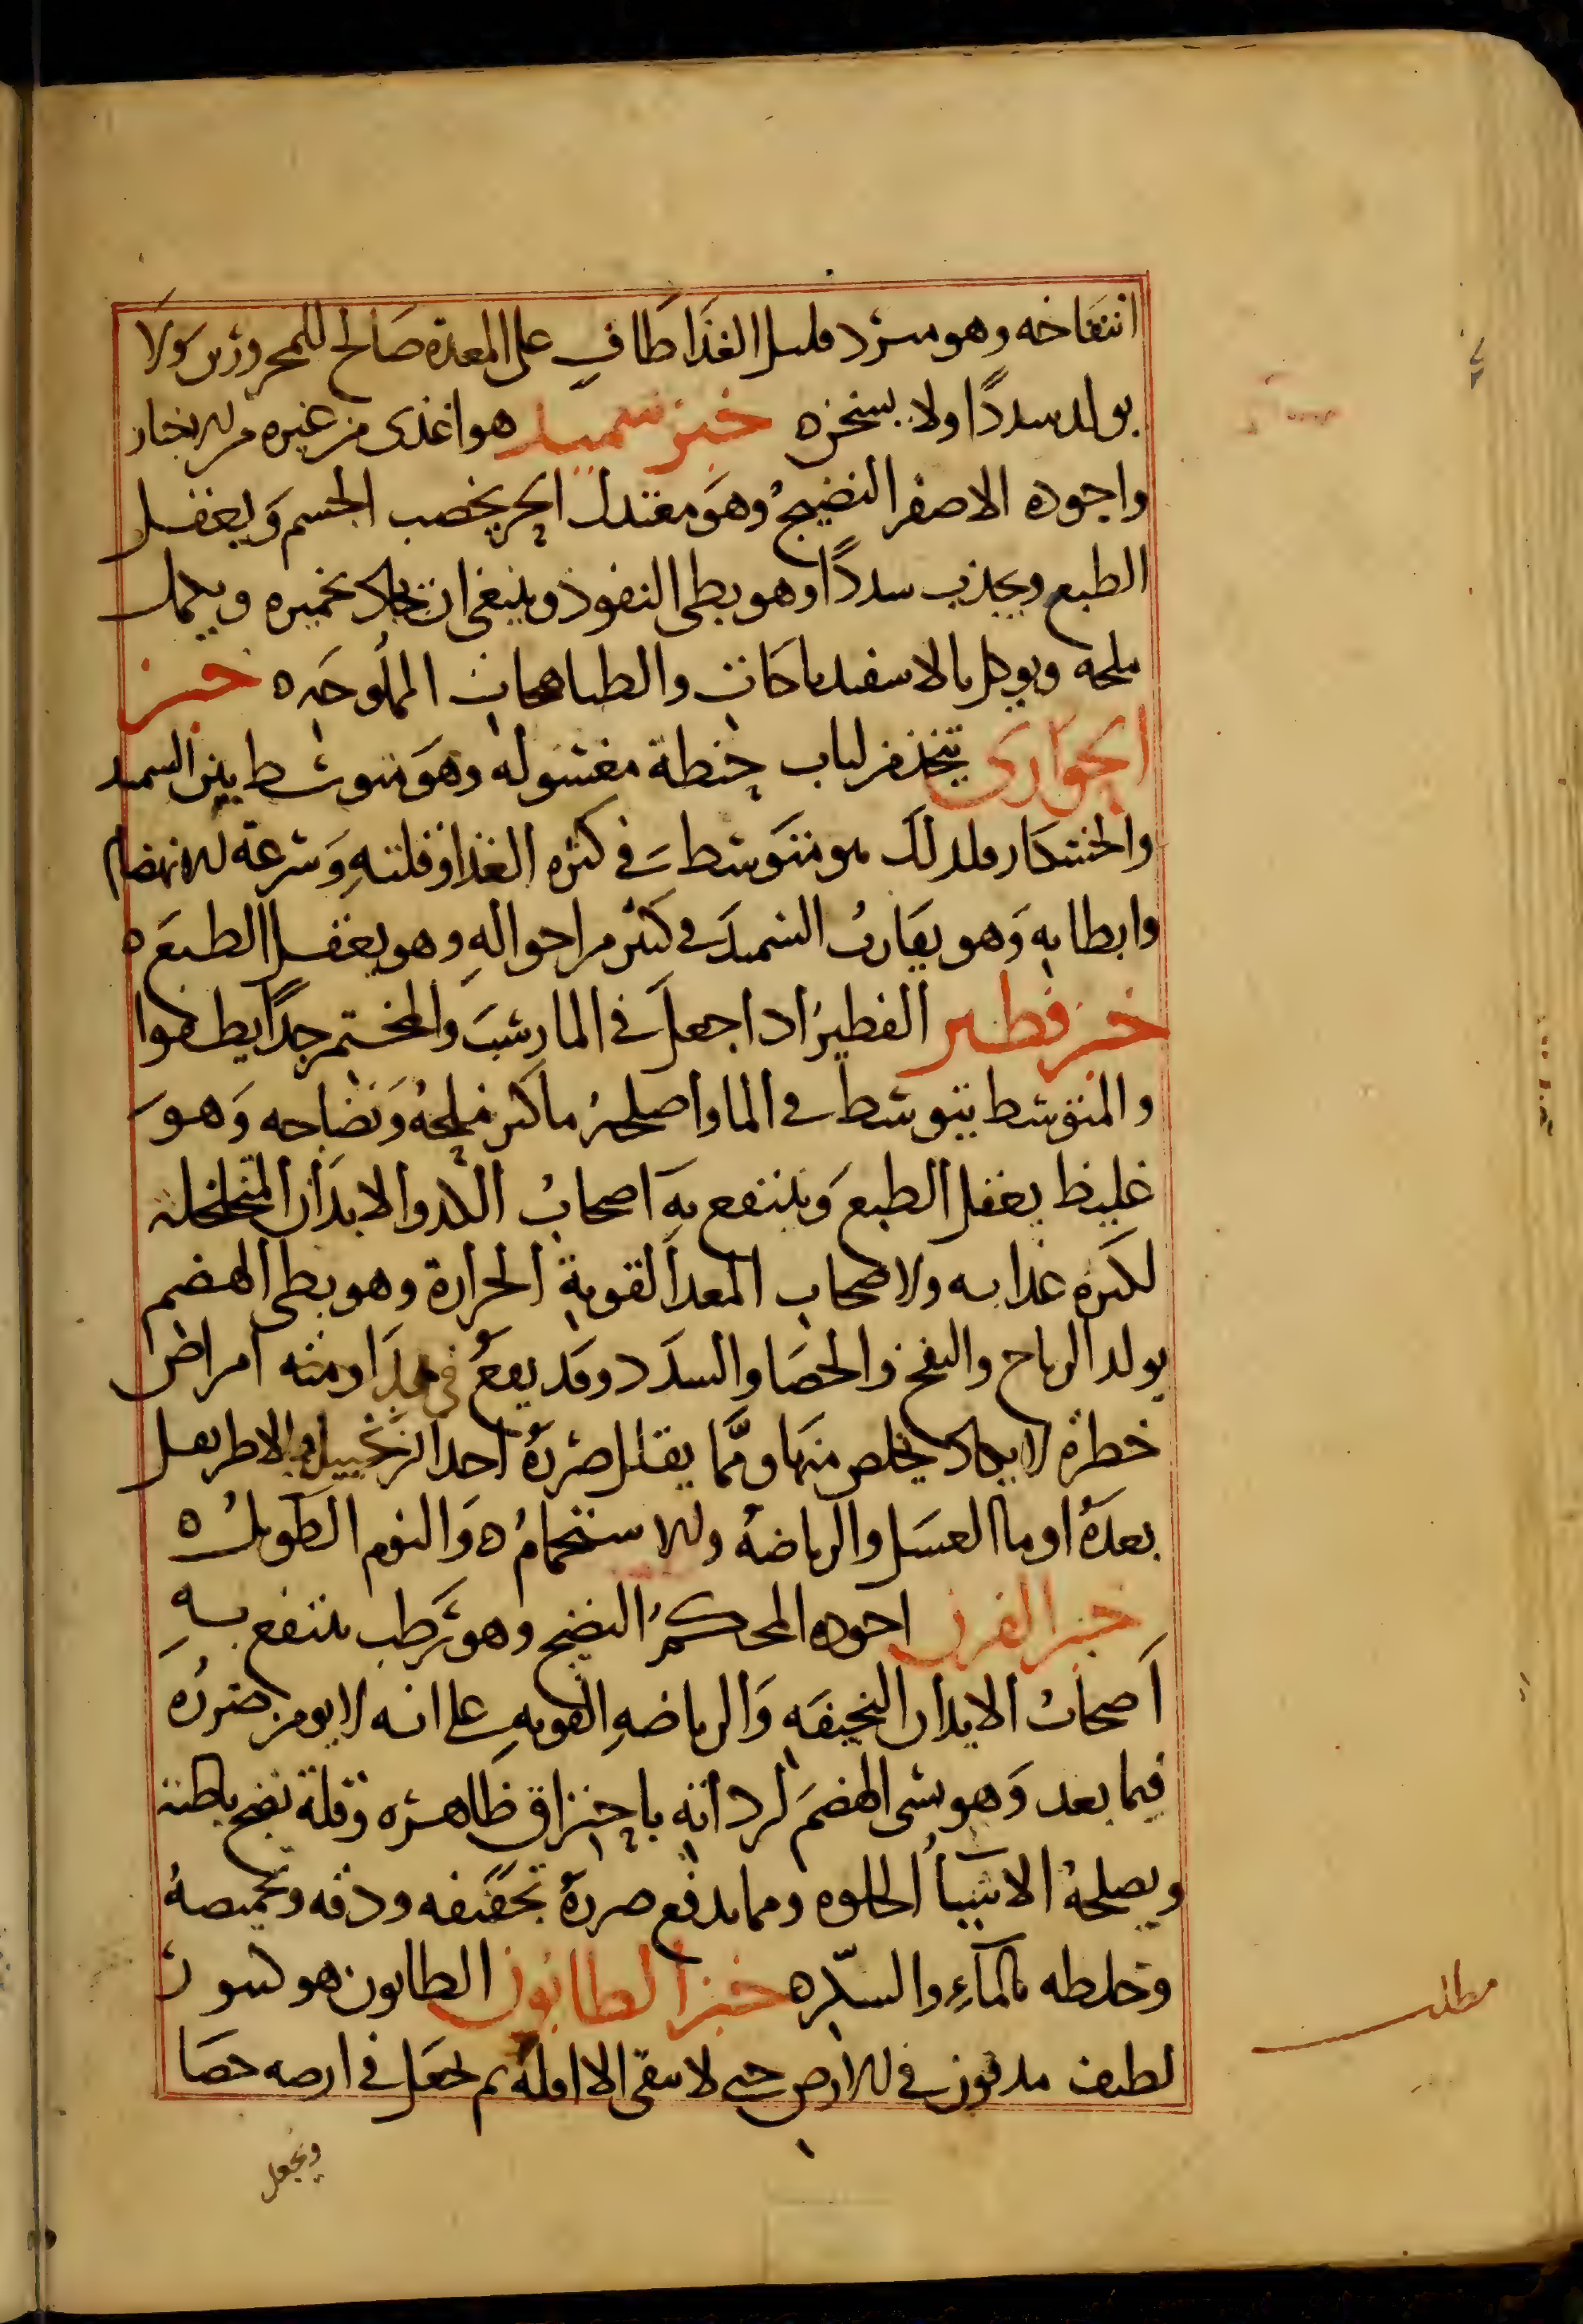 انتفاخه وهو مبرد قليل الغذا طاف على المعدة صالح للمحرورين ولا
يولد سددًا ولا يسخن ه خبز سميد هو اغذى من غيره من الاخباز
واجوده الاصفر النضيج وهو معتدل الحر يخصب الجسم ويعقل
الطبع ويحدث سددًا وهو بطى النفوذ وينبغى ان يجاد تخميره ويكمل
ملحه ويوكل بالاسفيدباجات والطباهجات المملوحه ه خبز
الحوارى يتخذ من لباب حنطة مغسوله وهو متوسط بين السميد
والخشكار ولذلك هو متوسط فى كثرة الغذا وقلته وسرعة الانهضام
وابطايه وهو يقارب السميد فى كثير من احواله وهو يعقل الطبع ه
خبز فطير الفطير اذا جعل فى الما رسب والمختمر جدًا يطفوا
والمتوسط يتوسط فى الما واصلحه ما كثر ملحه ونضاجه وهو
غليظ يعقل الطبع وينتفع به اصحاب الكد والابدان المتخلخلة
لكثره غذايه ولاصحاب المعد القوية الحرارة وهو بطى الهضم
يولد الرياح والنفخ والحصا والسدد وقد يقع فى مداومته امراض
خطرة لا يكاد يخلص منها ومما يقلل ضرره احد الزنجبيل والاطريفل
بعده او ما العسل والرياضه والاستحمام ه والنوم الطويل ه
خبز الفرن اجوده المحكم النضيج وهو رطب ينتفع به
اصحاب الابدان النحيفه والرياضه القويه على انه لا يومن ضرره
فيما بعد وهو بسى الهضم لرداته باحتراق ظاهره وقلة نضج باطنه
ويصلحه الاشيا الحلوه ومما يدفع ضرره تجفيفه ودقه وتحميصه
وخلطه بالماء والسكر ه خبز الطابون الطابون هو تنور
لطيف مدفون فى الارض حتى لا يبقى الا اوله ثم يجعل فى ارضه حصا
ويجعل
مطلب